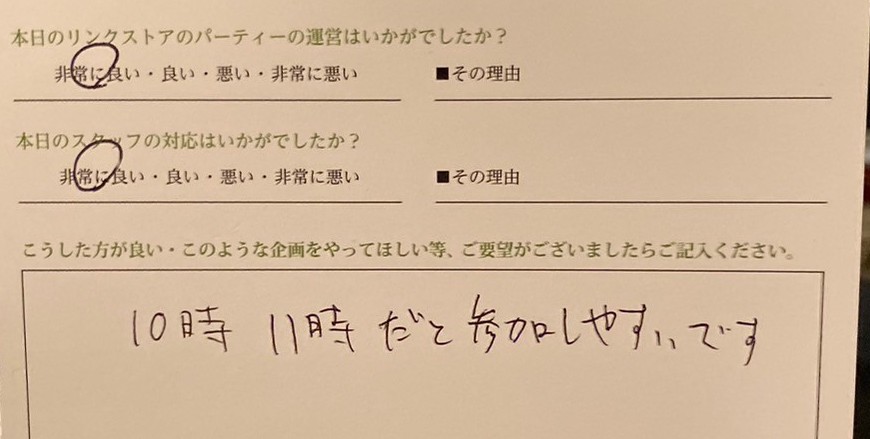 本日のリンクストアのパーティーの運営はいかがでしたか？
非常に良い・良い・悪い・非常に悪い ■その理由
本日のスタッフの対応はいかがでしたか？
非常に良い・良い・悪い・非常に悪い ■その理由
こうした方が良い・このような企画をやってほしい等、ご要望がございましたらご記入ください。
10時 11時 だと参加しやすいです